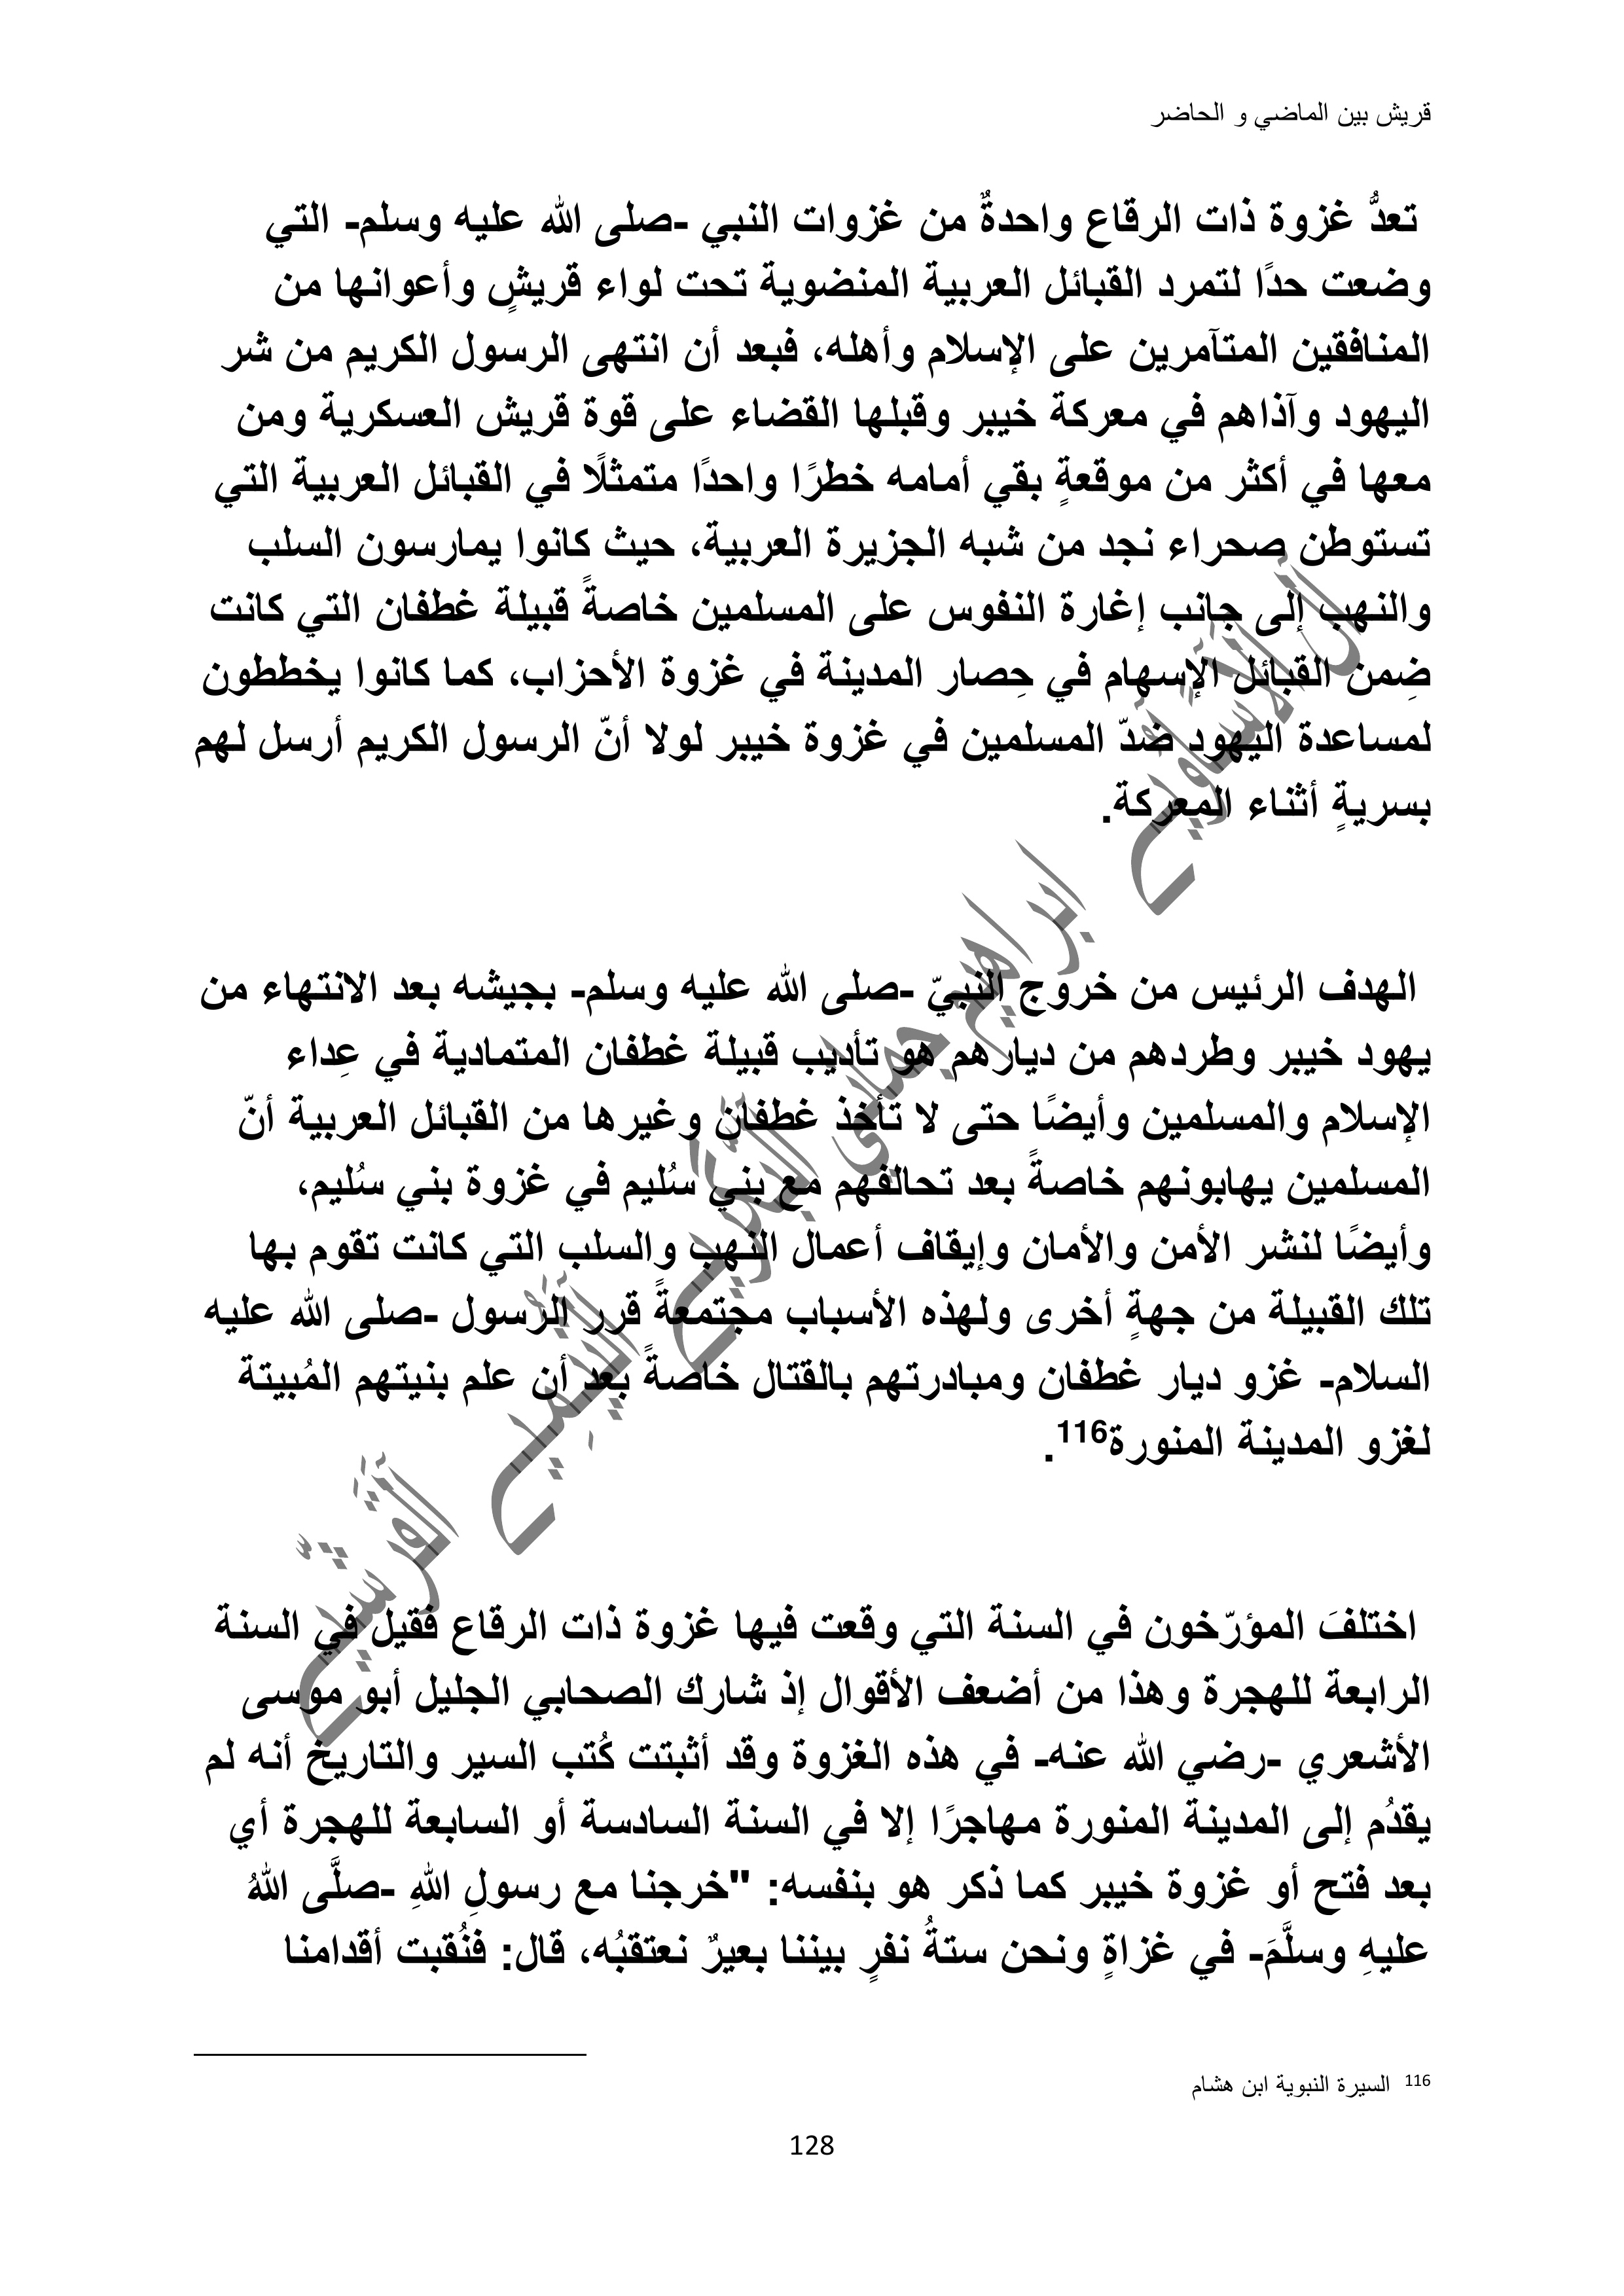 قريش بين الماضي و الحاضر
تعدُّ غزوة ذات الرقاع واحدةٌ من غزوات النبي -صلى الله عليه وسلم- التي
وضعت حدًا لتمرد القبائل العربية المنضوية تحت لواء قريشٍ وأعوانها من
المنافقين المتآمرين على الإسلام وأهله، فبعد أن انتهى الرسول الكريم من شر
اليهود وآذاهم في معركة خيبر وقبلها القضاء على قوة قريش العسكرية ومن
معها في أكثر من موقعةٍ بقي أمامه خطرًا واحدًا متمثلًا في القبائل العربية التي
تستوطن صحراء نجد من شبه الجزيرة العربية، حيث كانوا يمارسون السلب
والنهب إلى جانب إغارة النفوس على المسلمين خاصةً قبيلة غطفان التي كانت
ضِمن القبائل الإسهام في حِصار المدينة في غزوة الأحزاب، كما كانوا يخططون
لمساعدة اليهود ضدّ المسلمين في غزوة خيبر لولا أنّ الرسول الكريم أرسل لهم
بسريةٍ أثناء المعركة.
الهدف الرئيس من خروج النبيّ -صلى الله عليه وسلم- بجيشه بعد الانتهاء من
يهود خيبر وطردهم من ديارهم هو تأديب قبيلة غطفان المتمادية في عِداء
الإسلام والمسلمين وأيضًا حتى لا تأخذ غطفان وغيرها من القبائل العربية أنّ
المسلمين يهابونهم خاصةً بعد تحالفهم مع بني سُليم في غزوة بني سُليم،
وأيضًا لنشر الأمن والأمان وإيقاف أعمال النهب والسلب التي كانت تقوم بها
تلك القبيلة من جهةٍ أخرى ولهذه الأسباب مجتمعةً قرر الرسول -صلى الله عليه
السلام- غزو ديار غطفان ومبادرتهم بالقتال خاصةً بعد أن علم بنيتهم المُبيتة
لغزو المدينة المنورة116.
اختلفَ المؤرّخون في السنة التي وقعت فيها غزوة ذات الرقاع فقيل في السنة
الرابعة للهجرة وهذا من أضعف الأقوال إذ شارك الصحابي الجليل أبو موسى
الأشعري -رضي الله عنه- في هذه الغزوة وقد أثبتت كُتب السير والتاريخ أنه لم
يقدُم إلى المدينة المنورة مهاجرًا إلا في السنة السادسة أو السابعة للهجرة أي
بعد فتح أو غزوة خيبر كما ذكر هو بنفسه: "خرجنا مع رسولِ اللهِ -صلَّى اللهُ
عليهِ وسلَّمَ- في غزاةٍ ونحن ستةُ نفرٍ بيننا بعيرٌ نعتقبُه، قال: فنُقبت أقدامنا
116 السيرة النبوية ابن هشام
128